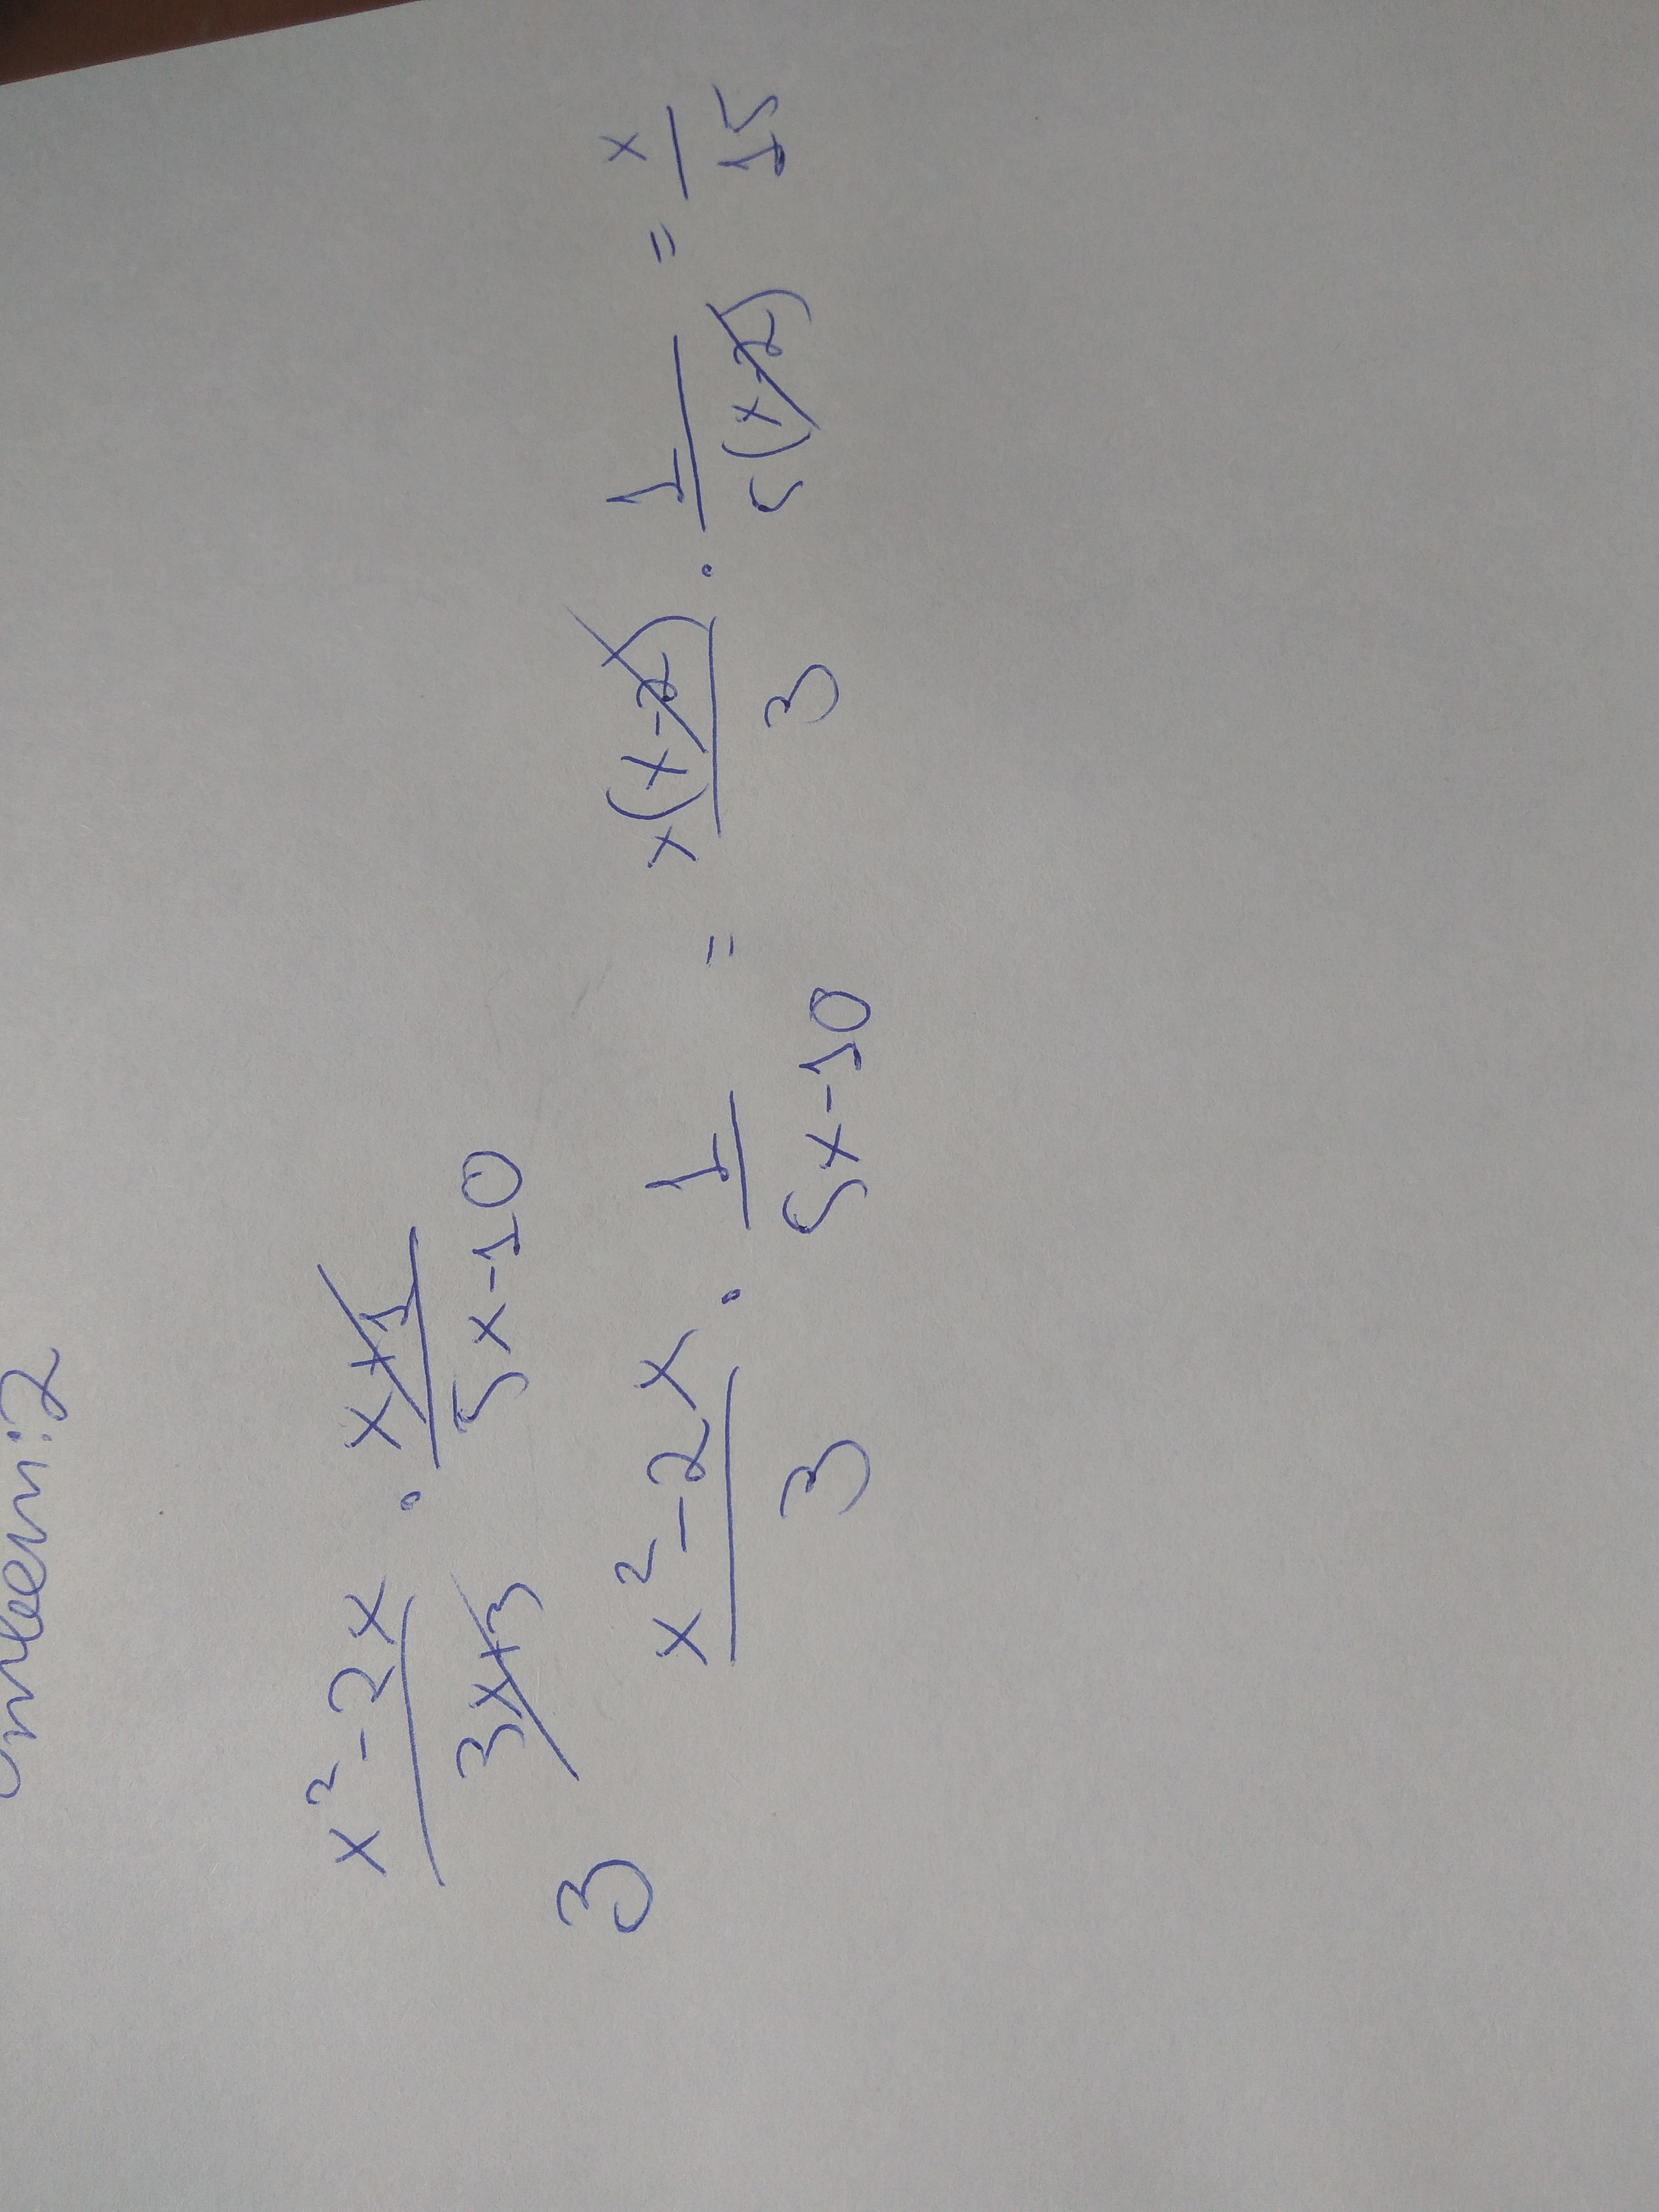 x² - 2x / 3x+3 · x+1 / 5x-10
3
x² - 2x / 3 · 1 / 5x-10 = x(x-2) / 3 · 1 / 5(x-2) = x / 15